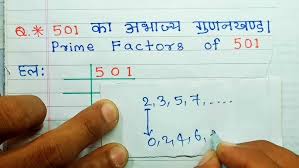 Q.* 501 का अभाज्य गुणनखण्ड।
Prime Factors of 501
हल:
501
2, 3, 5, 7, ....
0, 2, 4, 6,